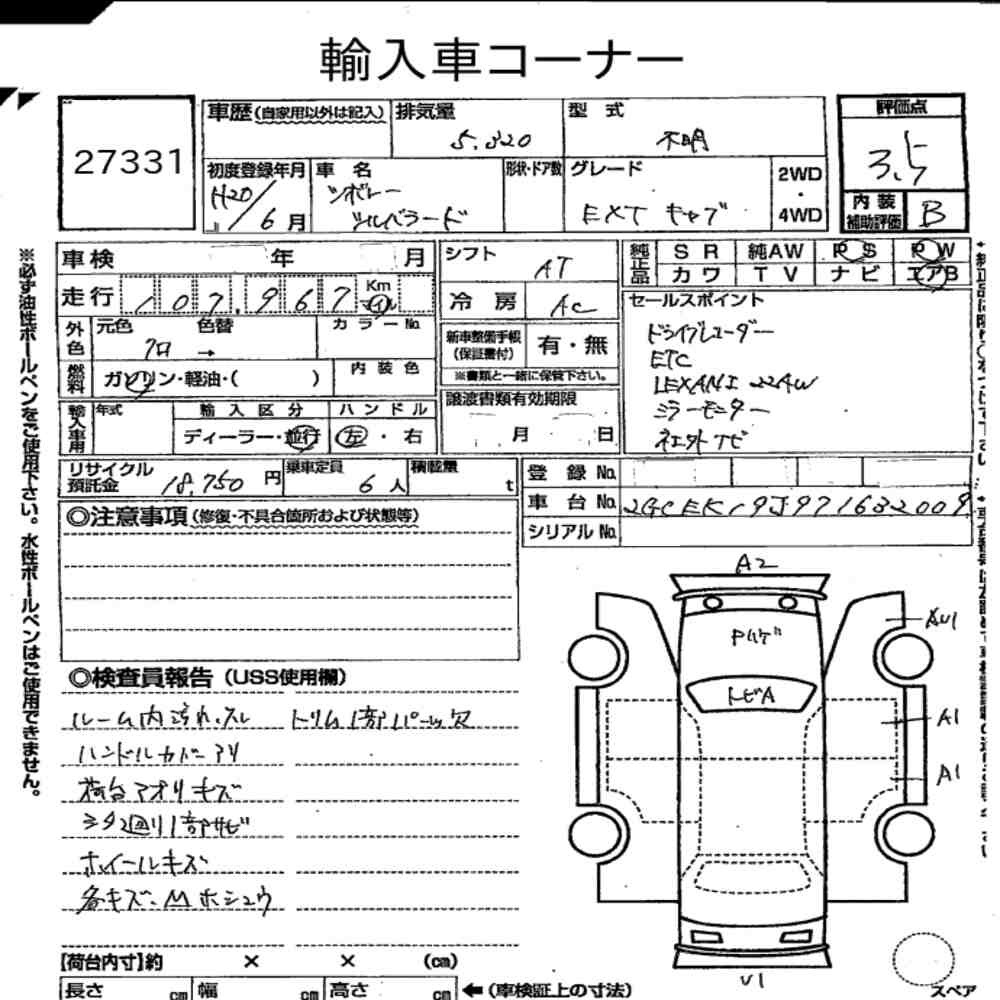 輸入車コーナー
27331
車歴(自家用以外は記入) 排気量 5.320 型式 不明
初度登録年月 H20/6月 車名 シボレー シルバラード 形状・ドア数 グレード EXT キャブ 2WD・4WD
評価点 3.5
内装補助評価 B
車検 年 月
走行 107.967 Km マイル
外色 元色 色替 カラーNo.
クロ →
燃料 ガソリン・軽油・( ) 内装色
輸入車用 年式 輸入区分 ハンドル
ディーラー・並行 左・右
シフト AT
冷房 AC
新車整備手帳(保証書付) 有・無
※書類と一緒に保管下さい。
譲渡書類有効期限
月 日
純正品 SR 純AW PS PW
カワ TV ナビ エアB
セールスポイント
ドライブレコーダー
ETC
LEXANI 22AW
ミラーモニター
社外ナビ
リサイクル預託金 18,750円 乗車定員 6人 積載量 t
登録No.
車台No. 2GCEK19J971632009
シリアルNo.
◎注意事項(修復・不具合箇所および状態等)
◎検査員報告(USS使用欄)
ルーム内汚れ.スレ トリム1部パーツ欠
ハンドルカバーアリ
荷台アオリキズ
シタ廻り1部サビ
ホイールキズ
各キズ.Mホシュウ
【荷台内寸】約 × × (cm)
長さ cm 幅 cm 高さ cm ←(車検証上の寸法)
A2
AU1
トビA
A1
A1
V1
スペア
※必ず油性ボールペンをご使用下さい。水性ボールペンはご使用できません。